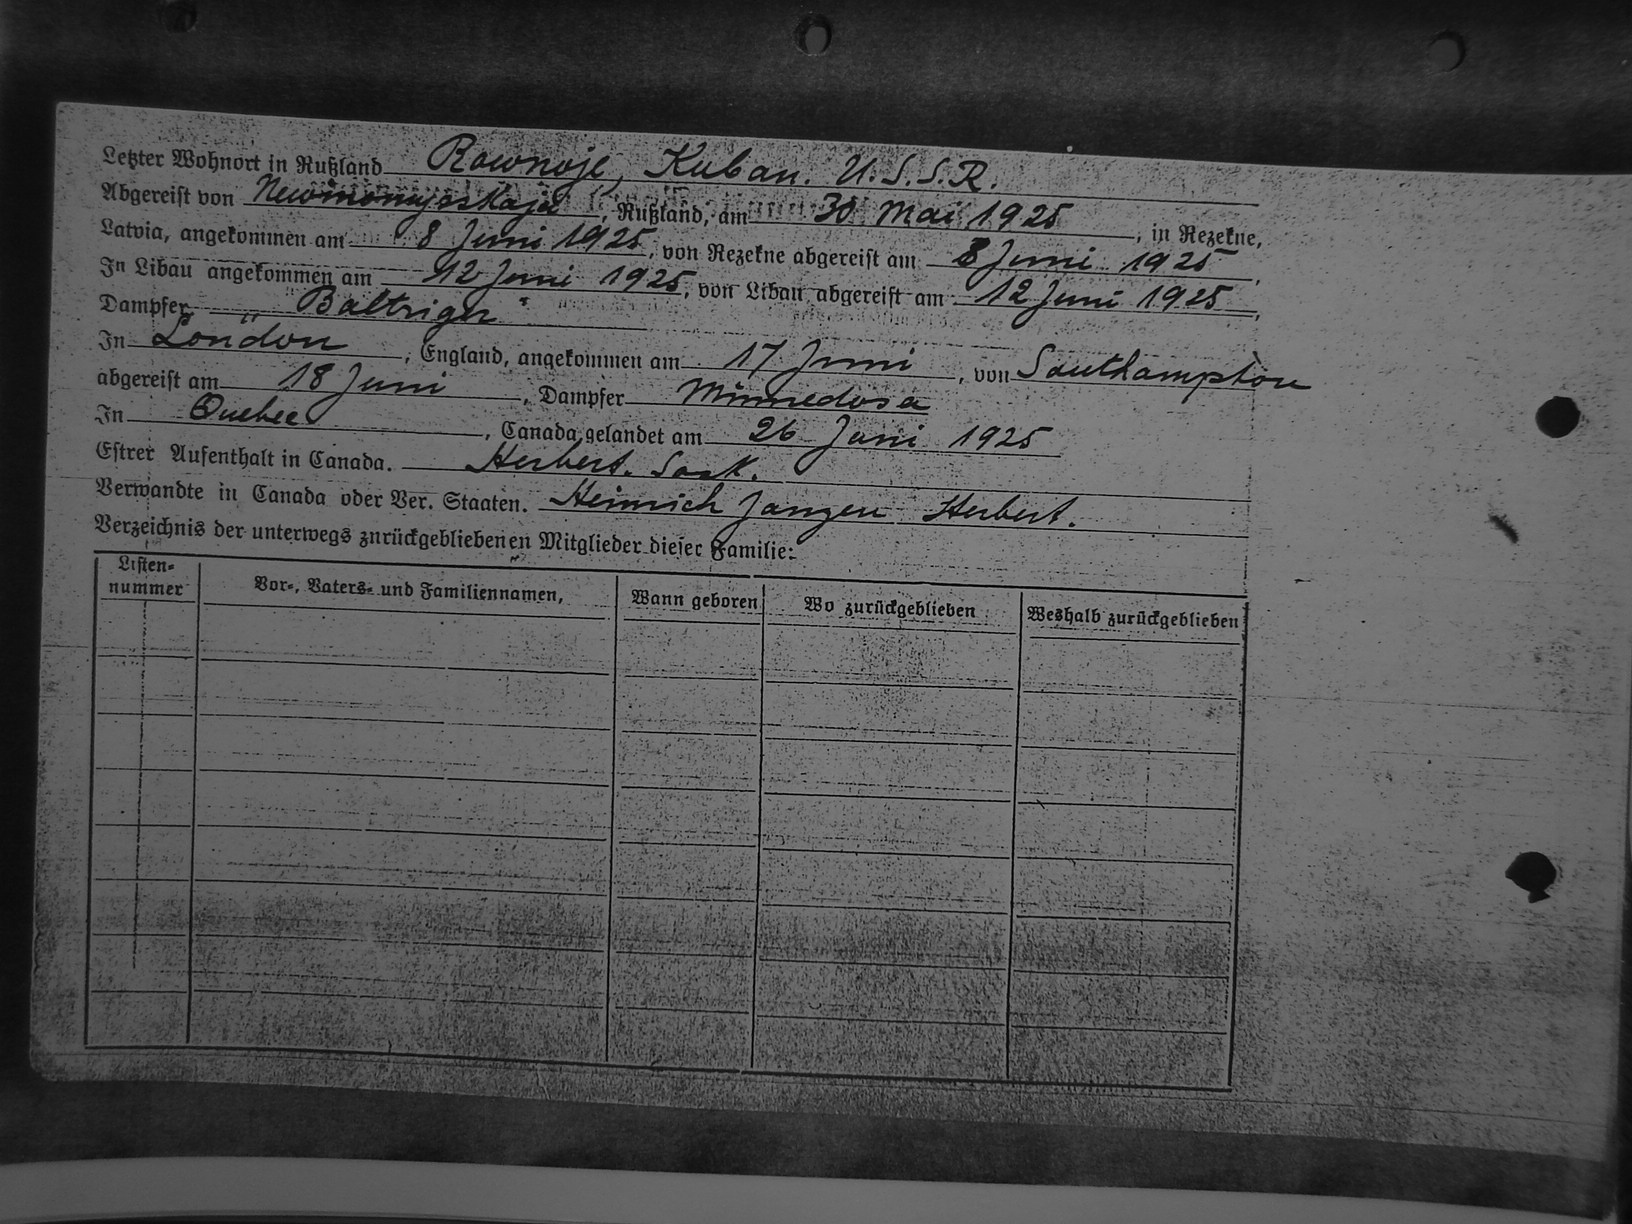 Letzter Wohnort in Rußland Rownoje, Kuban. U.S.S.R.
Abgereist von , Rußland, am 30 Mai 1925, in Rezekne,
Latvia, angekommen am 8 Juni 1925, von Rezekne abgereist am 8 Juni 1925,
In Libau angekommen am 12 Juni 1925, von Libau abgereist am 12 Juni 1925,
Dampfer "Baltriger"
In London, England, angekommen am 17 Juni, von Southampton
abgereist am 18 Juni, Dampfer Minnedosa
In Quebec, Canada gelandet am 26 Juni 1925
Estrer Aufenthalt in Canada. Herbert. Sask.
Verwandte in Canada oder Ver. Staaten. Heinrich Janzen Herbert.
Verzeichnis der unterwegs znrückgebliebenen Mitglieder dieser Familie:
Listen-nummer Vor-, Vaters- und Familiennamen, Wann geboren Wo zurückgeblieben Weshalb zurückgeblieben